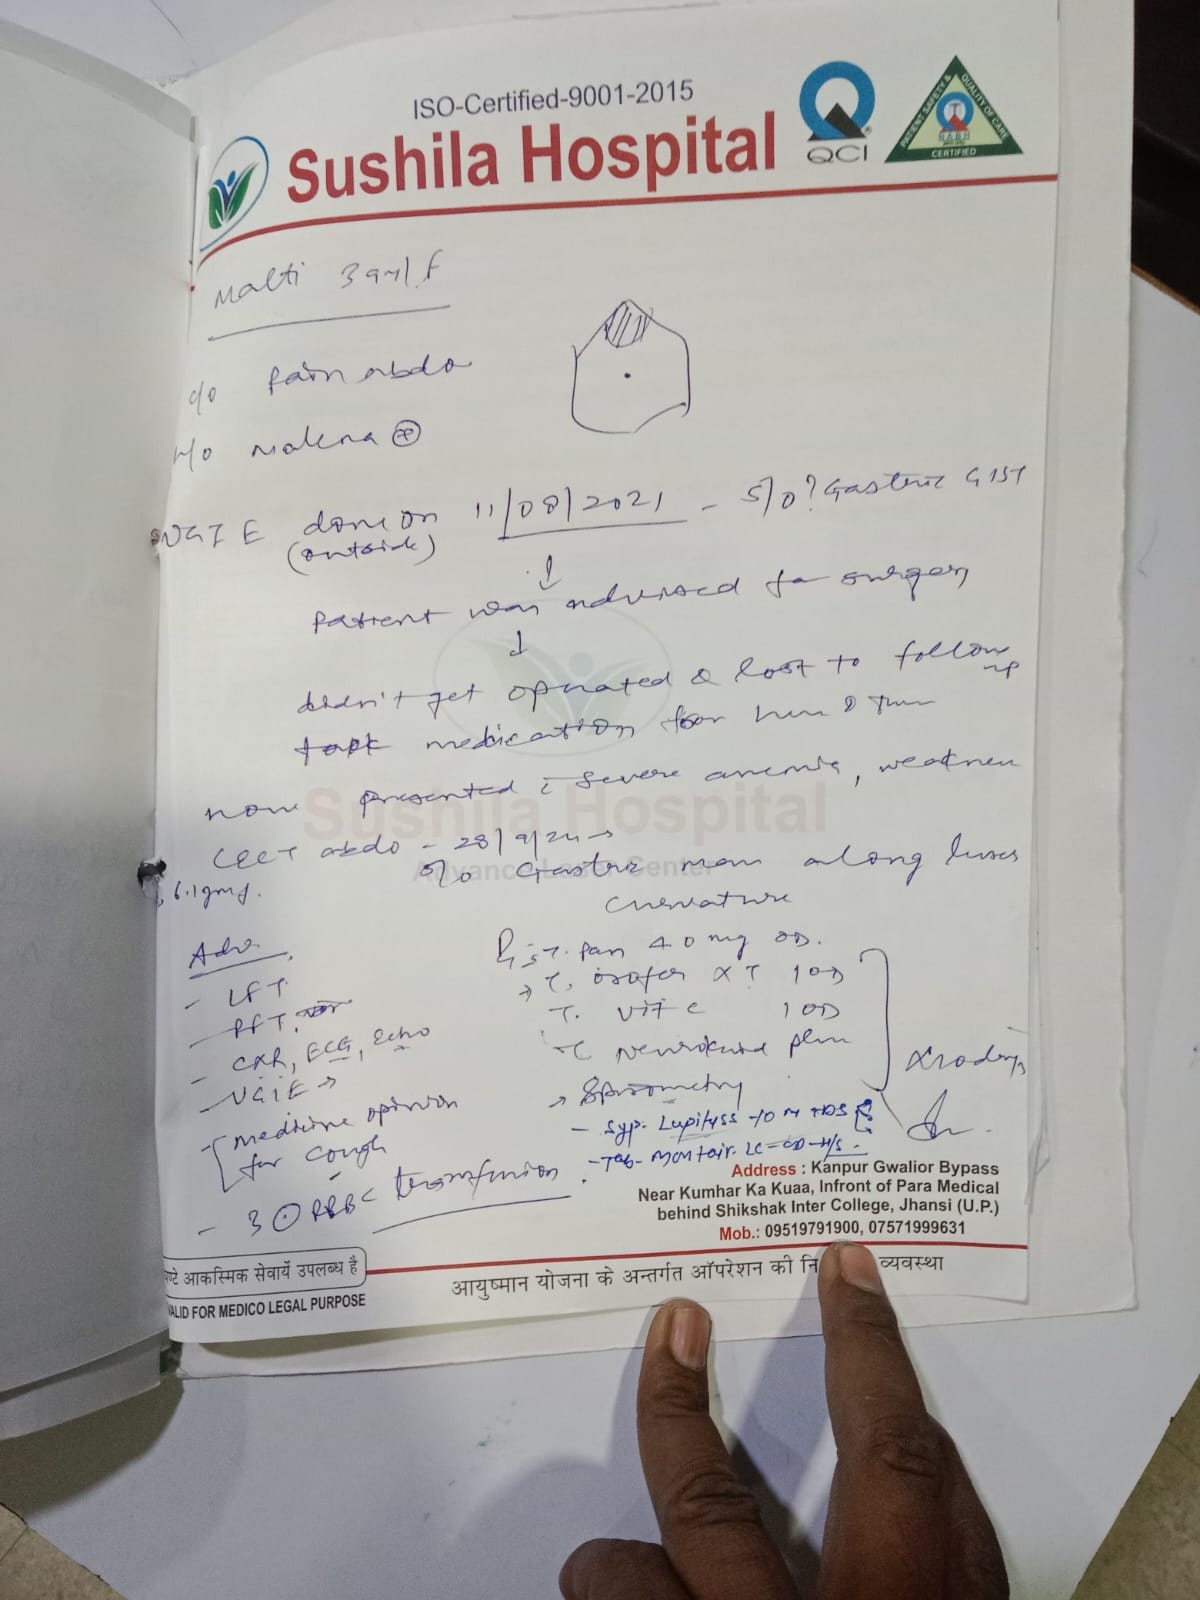 ISO-Certified-9001-2015
Sushila Hospital
QCI
PATIENT SAFETY & QUALITY OF CARE
NABH
CERTIFIED
Malti 39y/F
c/o Pain abdo
H/o Malena ⊕
UGIE done on 11/08/2021 - S/o ? Gastric GIST
(outside)
↓
Patient was advised for surgery
↓
didn't get operated & lost to follow up
took medication for
now presented c severe anemia, weakness
Sushila Hospital
CECT abdo - 28/9/24 →
Advance Center
6.1 gm/.
S/o Gastric mass along lesser
curvature
Adv.
- LFT
- PFT
- CXR, ECG, Echo
- UGIE →
- medicine opinion
for cough
- 3 ⊙ PRBC transfusion
T. Pan 40 mg OD.
→ T. Orofer XT 1 OD
T. Vit C 1 OD
T. Neurokind plus
→ Spirometry
- Syp. TDS
- Tab- Montair-LC- OD- H/S
Address : Kanpur Gwalior Bypass
Near Kumhar Ka Kuaa, Infront of Para Medical
behind Shikshak Inter College, Jhansi (U.P.)
Mob.: 09519791900, 07571999631
आकस्मिक सेवायें उपलब्ध है
आयुष्मान योजना के अन्तर्गत ऑपरेशन की व्यवस्था
VALID FOR MEDICO LEGAL PURPOSE